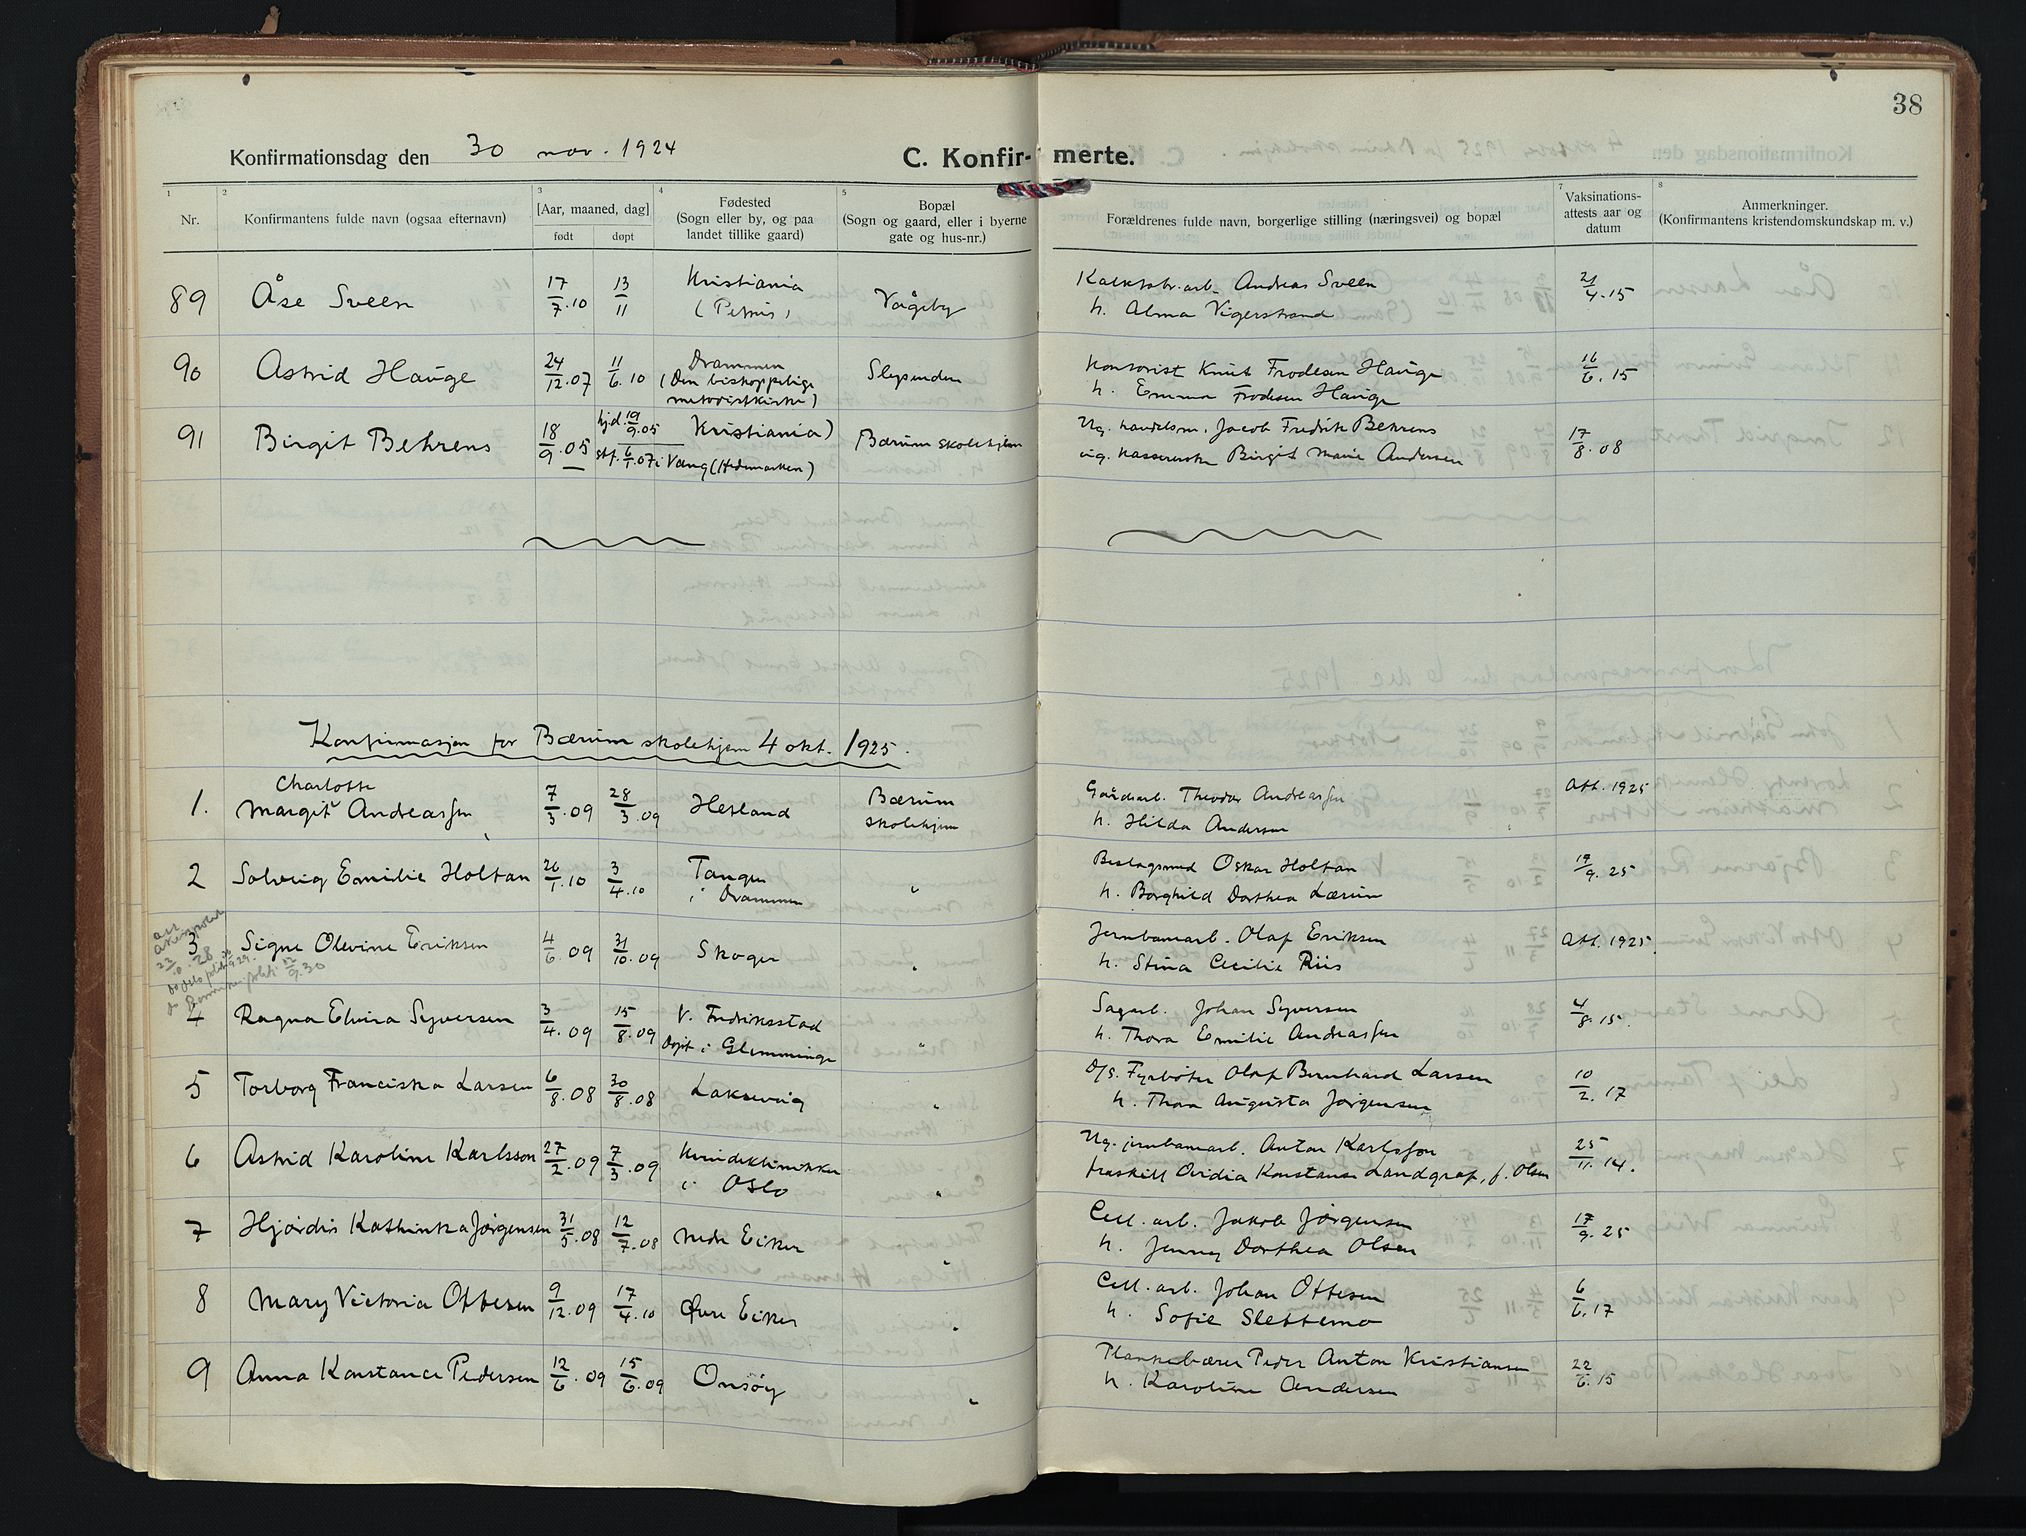 38
Konfirmationsdag den 30 nov. 1924
C. Konfirmerte.
1 2 3 4 5 7 8
Nr.
Konfirmantens fulde navn (ogsaa efternavn)
[Aar, maaned, dag]
født døpt
Fødested
(Sogn eller by, og paa
landet tillike gaard)
Bopæl
(Sogn og gaard, eller i byerne
gate og hus-nr.)
Forældrenes fulde navn, borgerlige stilling (næringsvei) og bopæl
Vaksinations-
attests aar og
datum
Anmerkninger.
(Konfirmantens kristendomskundskap m. v.)
89 Åse Sveen 17/7.10 13/11 Kristiania (Petrus) Vøgeby
Kalkstbr.arb. Andreas Sveen 21/4.15
h. Alma Vigerstrand
90 Astrid Hauge 24/12.07 11/6.10 Drammen (Den biskoppelige metodistkirke) Slependen
Kontorist Knut Frodesen Hauge 16/6.15
h. Emma Frodesen Hauge
91 Birgit Behrens 18/9.05 hjd. 19/9.05 Kristiania) Bærum skolehjem
stf. 6/1.07 i Vang (Hedemarken)
Ug. handelsm. Jacob Fredrik Behrens 17/8.08
ug. kassererske Birgit Marie Andersen
Konfirmasjon for Bærum skolehjem 4 okt. 1925.
1. Charlotte
Margit Andreassen 7/3.09 28/3.09 Hetland Bærum skolehjem
Gårdarb. Theodor Andreassen Att. 1925
h. Hilda Andersen
2 Solveig Emilie Holtan 26/1.10 3/4.10 Tangen i Drammen "
Beslagsmed Oskar Holtan 19/9.25
h. Borghild Dorthea Lærum
3 Signe Olevine Eriksen 4/6.09 31/10.09 Skoger "
Jernbanearb. Olaf Eriksen Att. 1925
h. Stina Cecilie Riis
4 Ragna Elvira Syversen 3/4.09 15/8.09 V. Fredriksstad "
Døpt i Glemminge
Sagarb. Johan Syversen 4/8.15.
h. Thora Emilie Andreassen
5 Torborg Franciska Larsen 6/8.08 30/8.08 Laksevåg "
D/s. Fyrbøter Olaf Bernhard Larsen 10/2.17
h. Thora Augusta Jørgensen
6 Astrid Karoline Karlsson 27/2.09 7/3.09 Kvindeklinikken i Oslo "
Ug. jernbanearb. Anton Karlsson 25/11.14.
fraskilt Ovidia Konstanse Landgraf, f. Olsen
7 Hjørdis Kathinka Jørgensen 31/5.08 12/7.08 Nedre Eiker "
Cell. arb. Jakob Jørgensen 17/9.25
h. Jenny Dorthea Olsen
8 Mary Victoria Ottesen 9/12.09 17/4.10 Øvre Eiker "
Cell. arb. Johan Ottesen 6/6.17
h. Sofie Slettemo
9 Anna Konstance Pedersen 12/6.09 15/6.09 Onsøy "
Plankebærer Peder Anton Kristiansen 22/6.15
h. Karoline Andersen